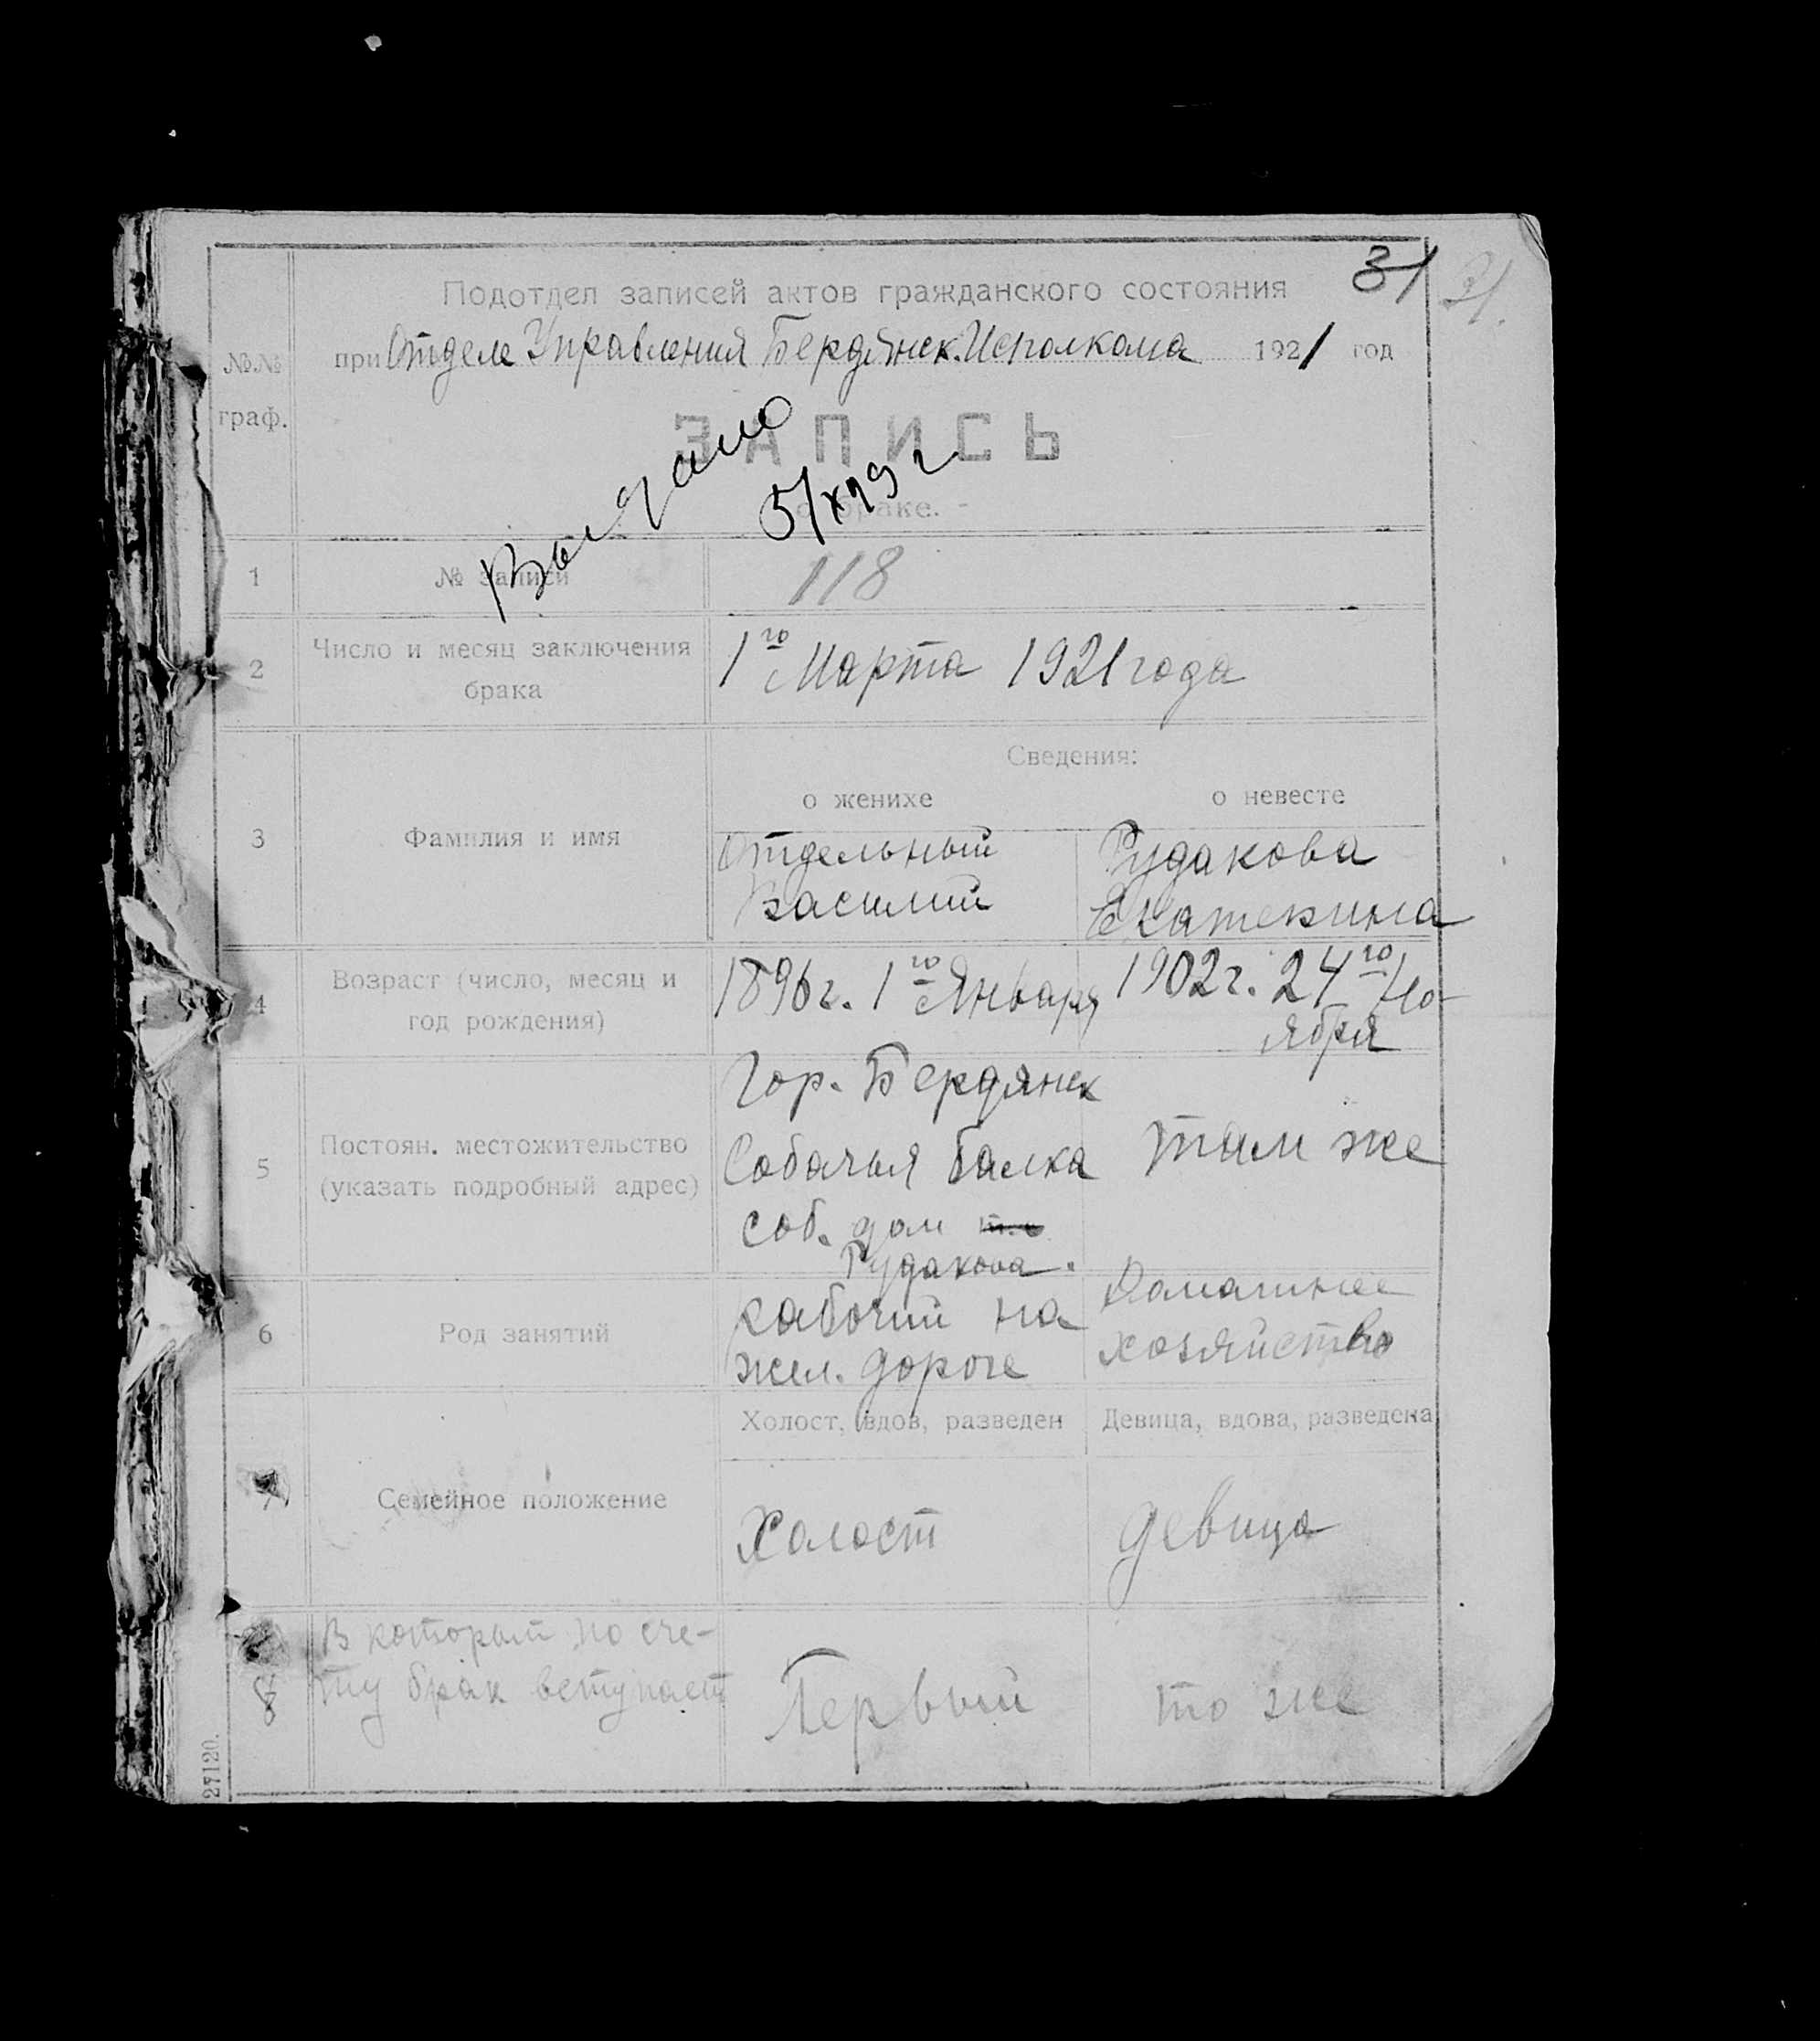 31
31.
Подотдел записей актов гражданского состояния
при Отделе Управления Бердянск. Исполкома 1921 год
№№
граф.
ЗАПИСЬ
о браке.
Выдано
5/X 29 г
1 № записи 118
2 Число и месяц заключения
брака
1го Марта 1921 года
Сведения:
о женихе о невесте
3 Фамилия и имя
Отдельный Рудакова
Василий Екатерина
4 Возраст (число, месяц и
год рождения)
1896 г. 1го Января 1902 г. 24го Но-
ября
5 Постоян. местожительство
(указать подробный адрес)
Гор. Бердянск
Собачья балка там же
соб. дом
Рудакова.
6 Род занятий
рабочий на Домашнее
жел. дороге хозяйство
Холост, вдов, разведен Девица, вдова, разведена
7 Семейное положение
Холост девица
8 В который по сче-
ту брак вступает
Первый то же
27120.